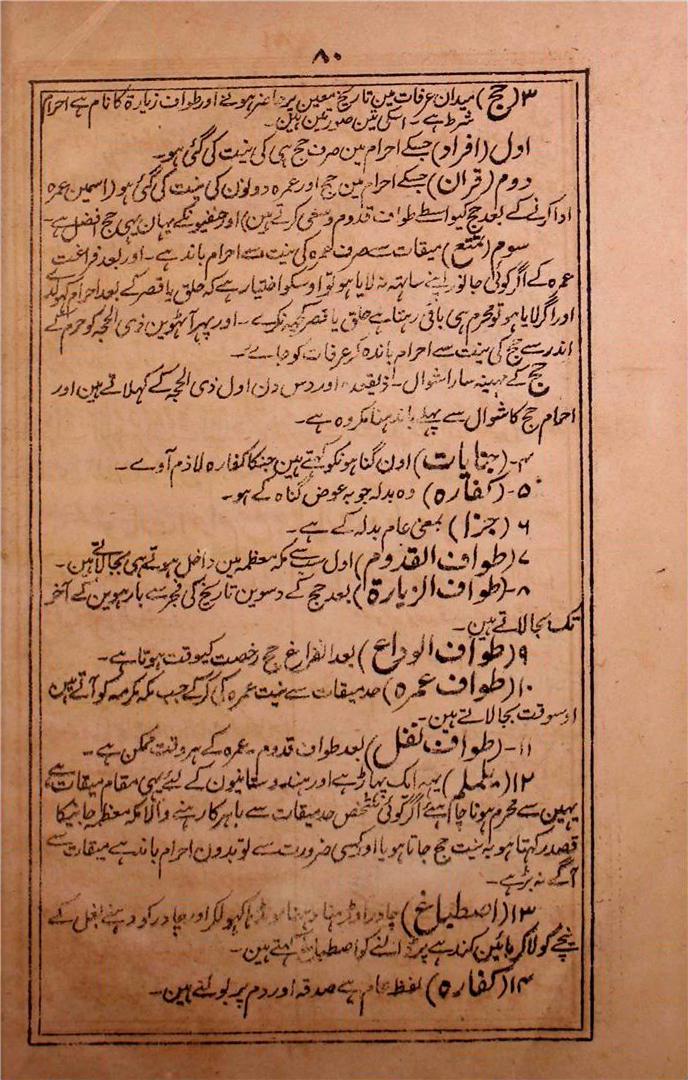 ۸۰
۳ (حج) میدان عرفات مین تاریخ معین پر حاضر ہونے اور طواف زیارة کا نام ہے احرام
شرط ہے۔ اسکی تین صورتین ہین۔
اول (افراد) جسکے احرام مین صرف حج ہی کی نیت کی گئی ہو۔
دوم (قران) جسکے احرام مین حج اور عمرہ دونون کی نیت کی گئی ہو (اسمین عمرہ
ادا کرنے کے بعد حج کیواسطے طواف قدوم و سعی کرتے ہین) اور حنفیونکے یہان یہی حج افضل ہے۔
سوم (تمتع) میقات سے صرف عمرہ کی نیت سے احرام باندہے۔ اور بعد فراغت
عمرہ کے اگر کوئی جانور اپنے ساتہہ نہ لایا ہو تو اوسکو اختیار ہے کہ حلق یا قصر کے بعد احرام کہولدے
اور اگر لایا ہو تو محرم ہی باقی رہتا ہے حلق یا قصر کچہہ نکرے۔ اور پہر آٹہوین ذی الحجہ کو حرم کے
اندر سے حج کی نیت سے احرام باندہ کر عرفات کو جاے۔
حج کے مہینہ سارا شوال۔ ذیقعدہ اور دس دن اول ذی الحجہ کے کہلاتے ہین اور
احرام حج کا شوال سے پہلے باندہنا مکروہ ہے۔
۴۔ (جنایات) اون گناہونکو کہتے ہین جنکا کفارہ لازم آوے۔
۵۔ (کفارہ) وہ بدلہ جو بہ عوض گناہ کے ہو۔
۶ (جزا) بمعنی عام بدلہ کے ہے۔
۷ (طواف القدوم) اول سے مکہ معظمہ مین داخل ہوتے ہی بجا لاتے ہین۔
۸۔ (طواف الزیارة) بعد حج کے دسوین تاریخ کی فجر سے بارہوین کے آخر
تک بجا لاتے ہین۔
۹ (طواف الوداع) بعد الفراغ حج رخصت کیوقت ہوتا ہے۔
۱۰ (طواف عمرہ) حد میقات سے نیت عمرہ کی کر کے جب مکہ مکرمہ کو آتے ہین
اوسوقت بجا لاتے ہین۔
۱۱۔ (طواف نفل) بعد طواف قدوم۔ عمرہ کے ہر وقت ممکن ہے۔
۱۲ (یلملم) یہہ ایک پہاڑ ہے اور ہندوستانیون کے لیئے یہی مقام میقات ہے
یہین سے محرم ہونا چاہئے اگر کوئی شخص حد میقات سے باہر کا رہنے والا مکہ معظمہ جانیکا
قصد رکہتا ہو بہ نیت حج جاتا ہو یا اور کسی ضرورت سے تو بدون احرام باندہے میقات سے
آگے نہ بڑہے۔
۱۳ (اصطباغ) چادر اوڑہنا دہنا مونڈہا کہولکر اور چادر کو دہنے بغل کے
نیچے کو لا کر بائین کندہے پر ڈالنے کو اصطباغ کہتے ہین۔
۱۴ (کفارہ) لفظ عام ہے صدقہ اور دم پر بولتے ہین۔